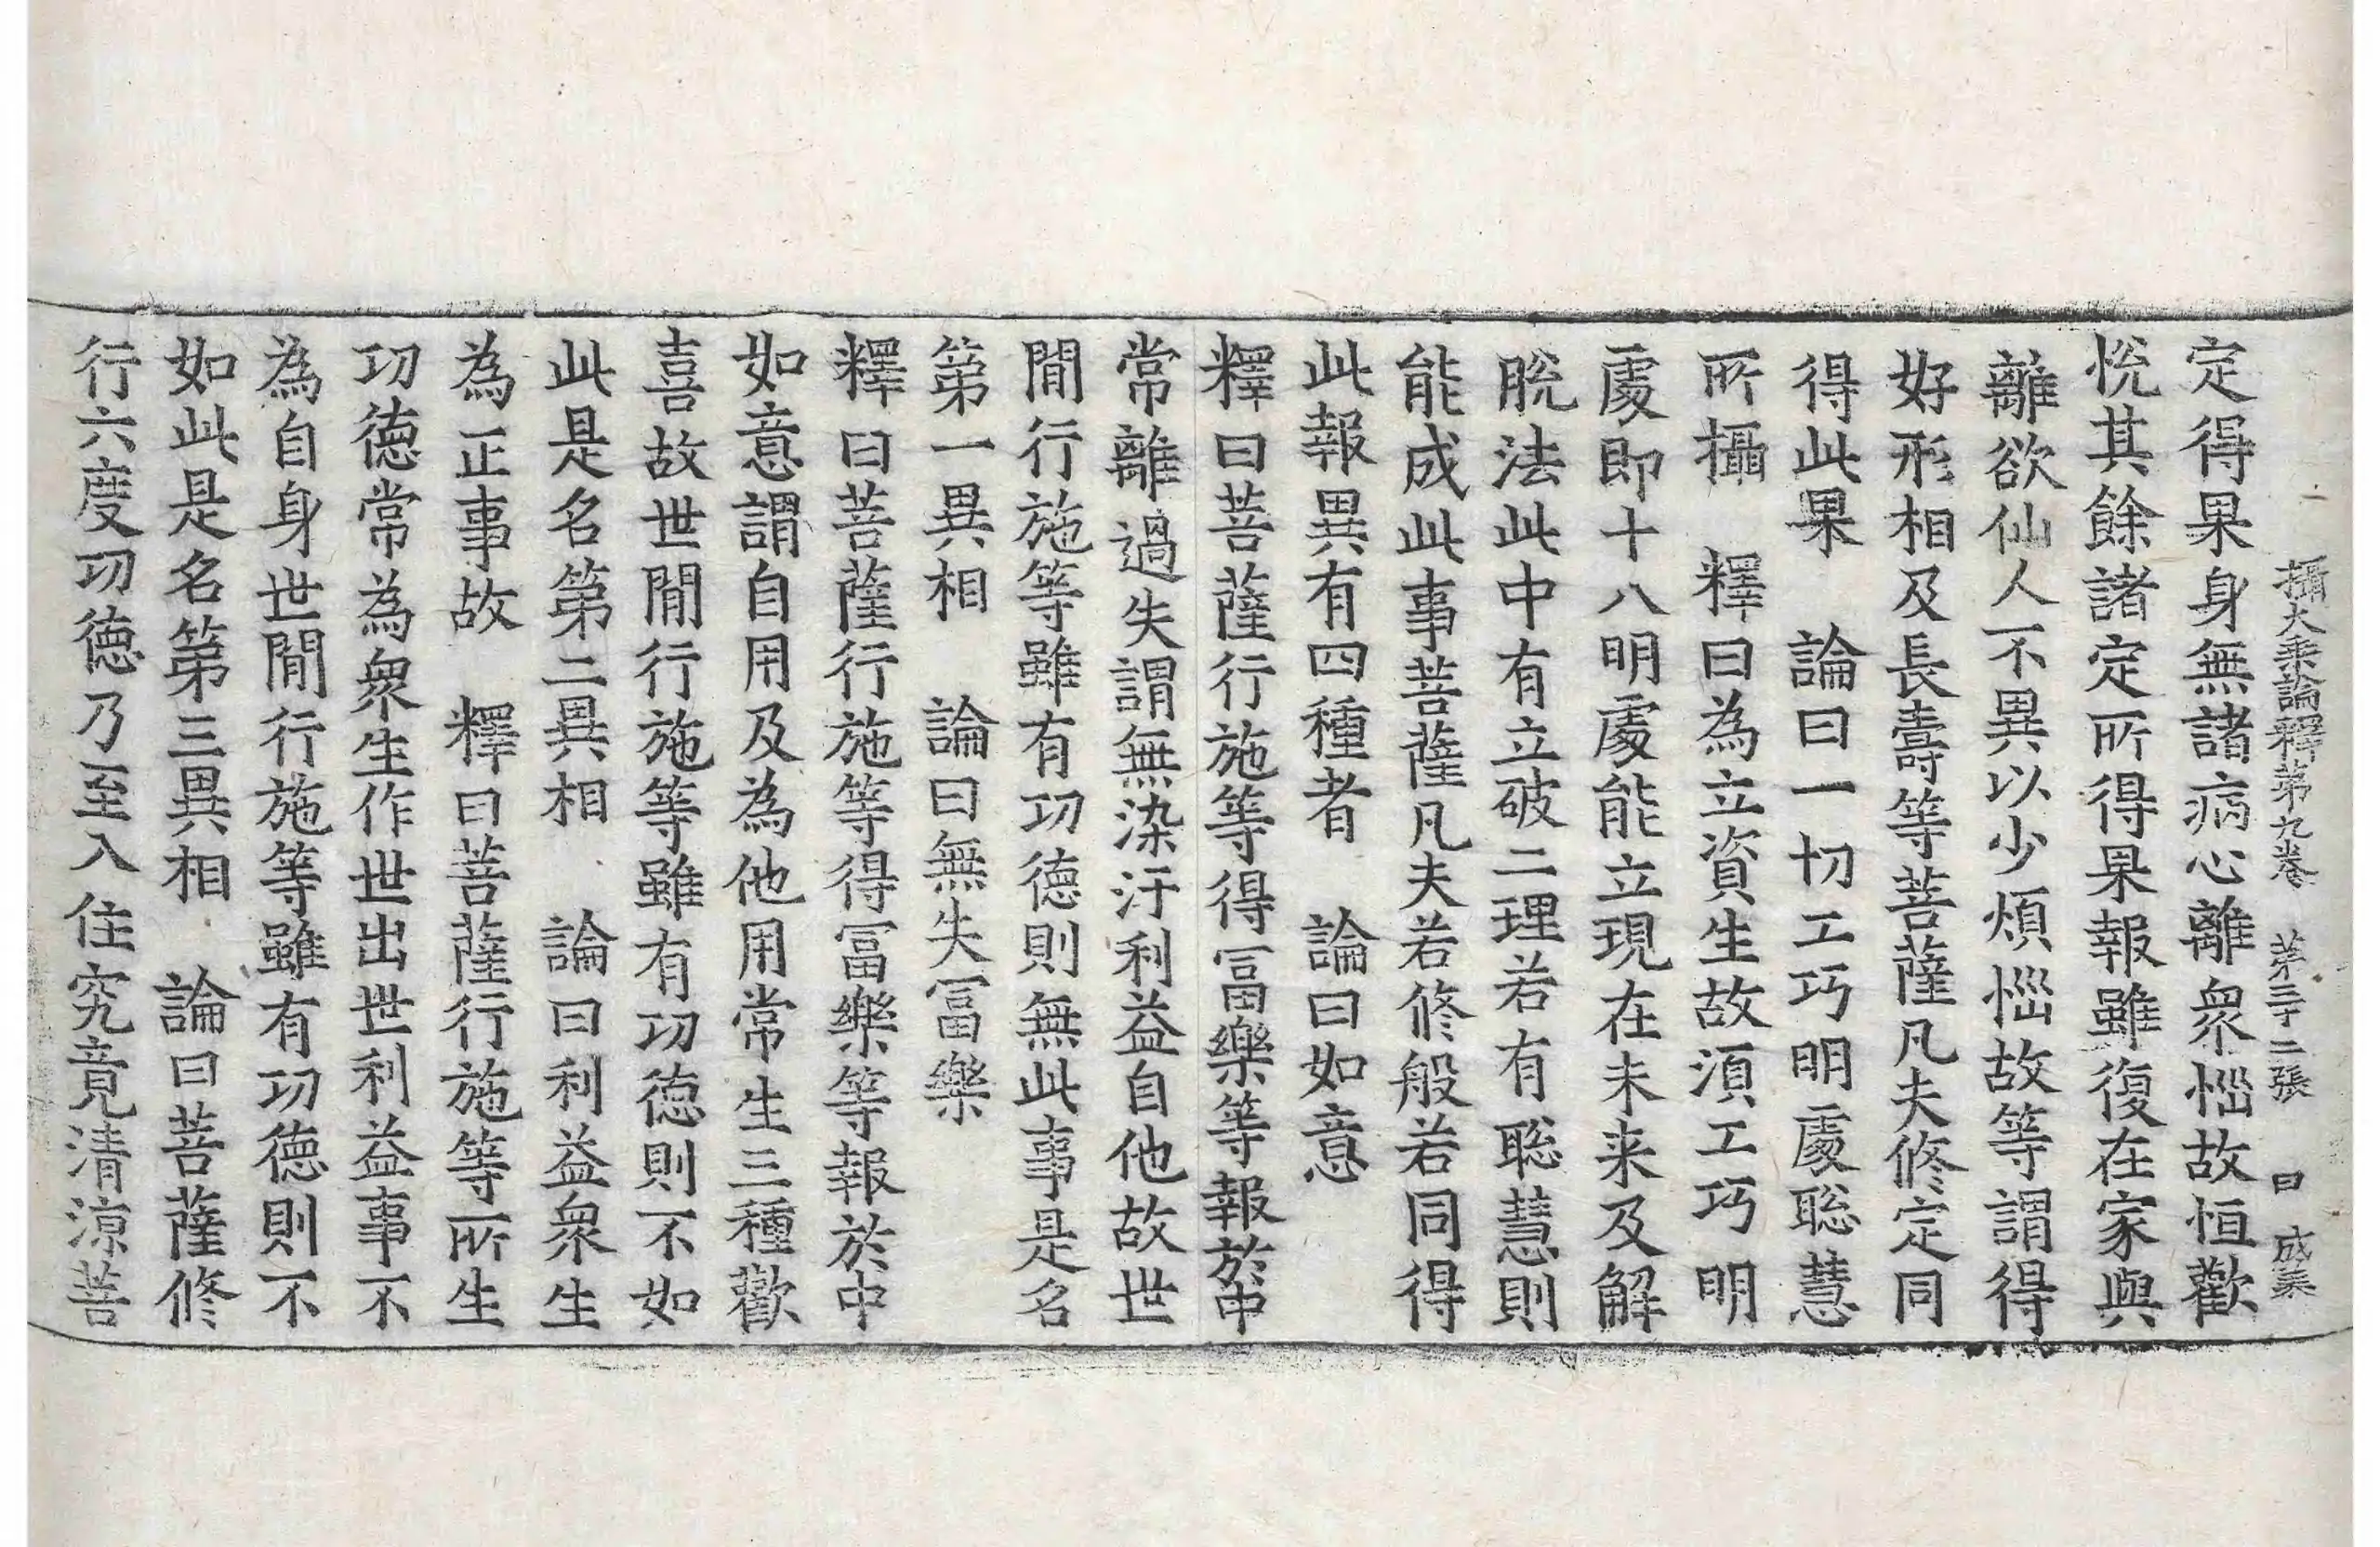 攝大乘論釋第九卷　第三十二張　曰　成奚
定得果身無諸病心離衆惱故恒歡
悅其餘諸定所得果報雖復在家與
離欲仙人不異以少煩惱故等謂得
好形相及長壽等菩薩凡夫修定同
得此果　論曰一切工巧明處聡慧
所攝　釋曰為立資生故湏工巧明
處即十八明處能立現在未来及解
脫法此中有立破二理若有聡慧則
能成此事菩薩凡夫若修般若同得
此報異有四種者　論曰如意
釋曰菩薩行施等得冨樂等報於中
常離過失謂無染汙利益自他故世
間行施等雖有功德則無此事是名
第一異相　論曰無失冨樂
釋曰菩薩行施等得冨樂等報於中
如意謂自用及為他用常生三種歡
喜故世間行施等雖有功德則不如
此是名第二異相　論曰利益衆生
為正事故　釋曰菩薩行施等所生
功德常為衆生作世出世利益事不
為自身世間行施等雖有功德則不
如此是名第三異相　論曰菩薩修
行六度功德乃至入住究竟清涼菩